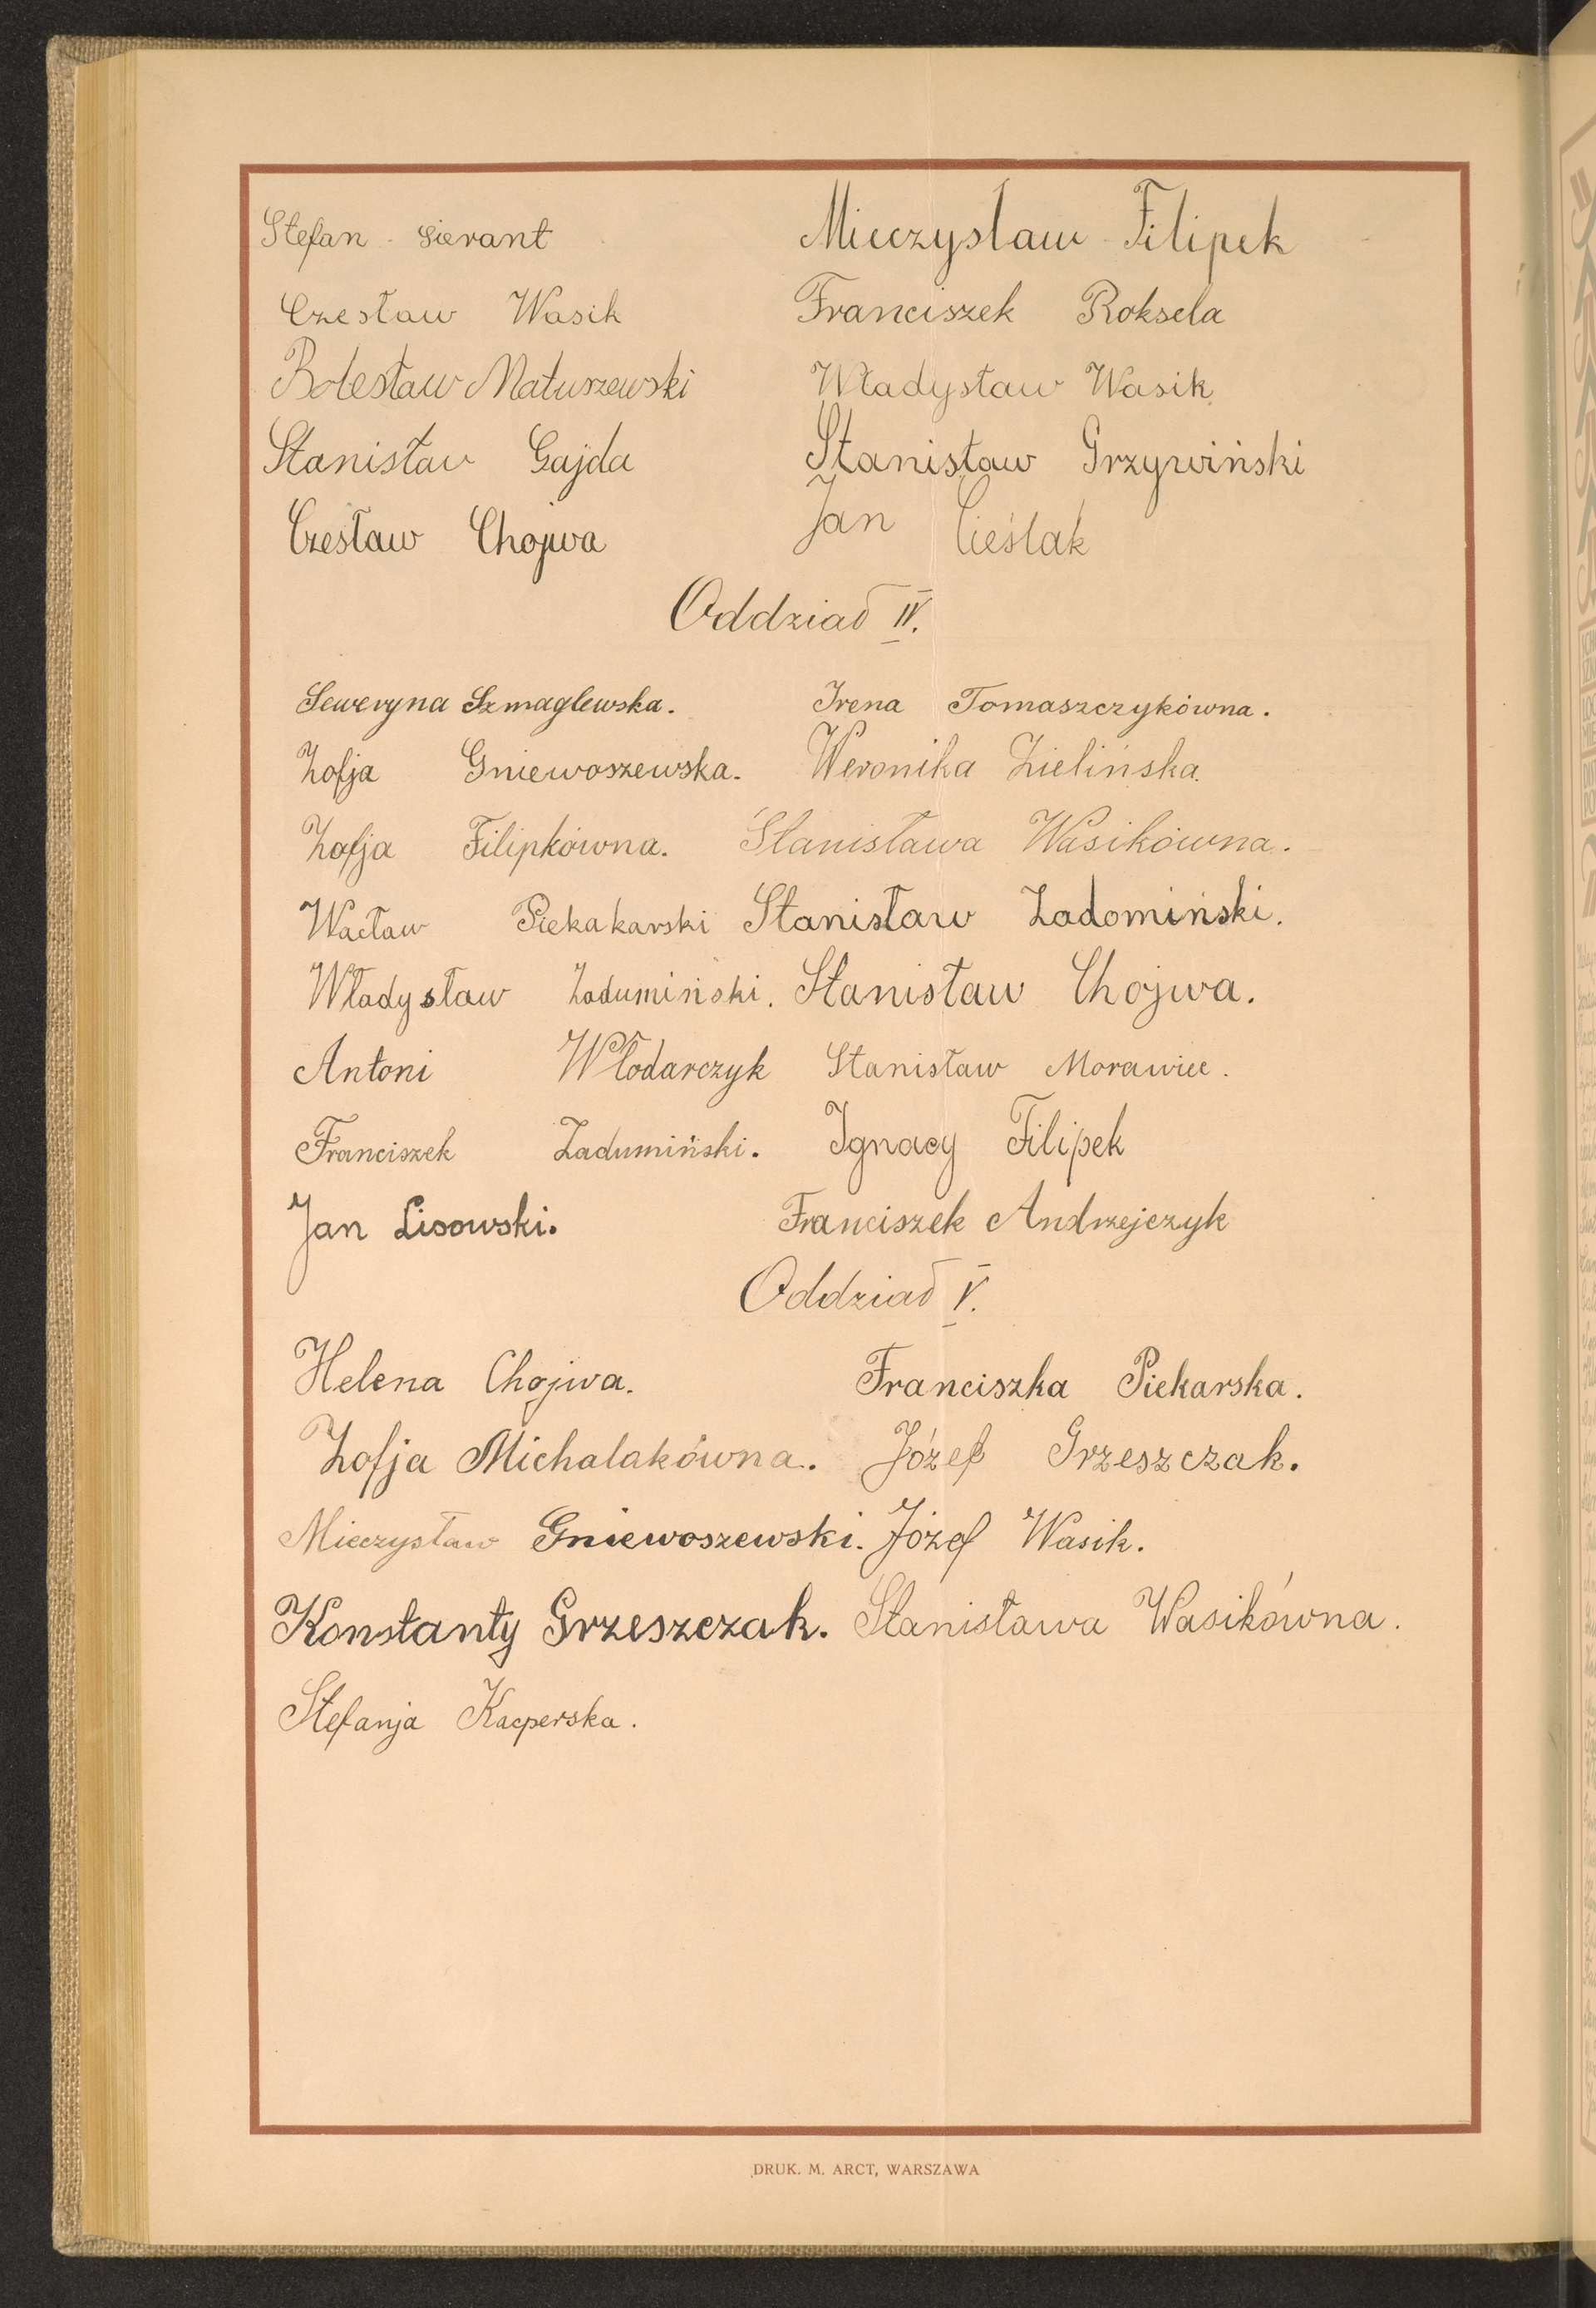 Stefan Sierant Mieczysław Filipek
Czesław Wasik Franciszek Roksela
Bolesław Matuszewski Władysław Wasik
Stanisław Gajda Stanisław Grzywiński
Czesław Chojwa Jan Cieślak
Oddział IV.
Seweryna Szmaglewska. Irena Tomaszczykówna.
Zofja Gniewoszewska. Weronika Zielińska.
Zofja Filipkówna. Stanisława Wasikówna.
Wacław Piekakarski Stanisław Zadomiński.
Władysław Zadumiński. Stanisław Chojwa.
Antoni Włodarczyk Stanisław Morawiec.
Franciszek Zadumiński. Ignacy Filipek
Jan Lisowski. Franciszek Andrzejczyk
Oddział V.
Helena Chojwa. Franciszka Piekarska.
Zofja Michalakówna. Józef Grzeszczak.
Mieczysław Gniewoszewski. Józef Wasik.
Konstanty Grzeszczak. Stanisława Wasikówna.
Stefanja Kacperska.
DRUK. M. ARCT, WARSZAWA